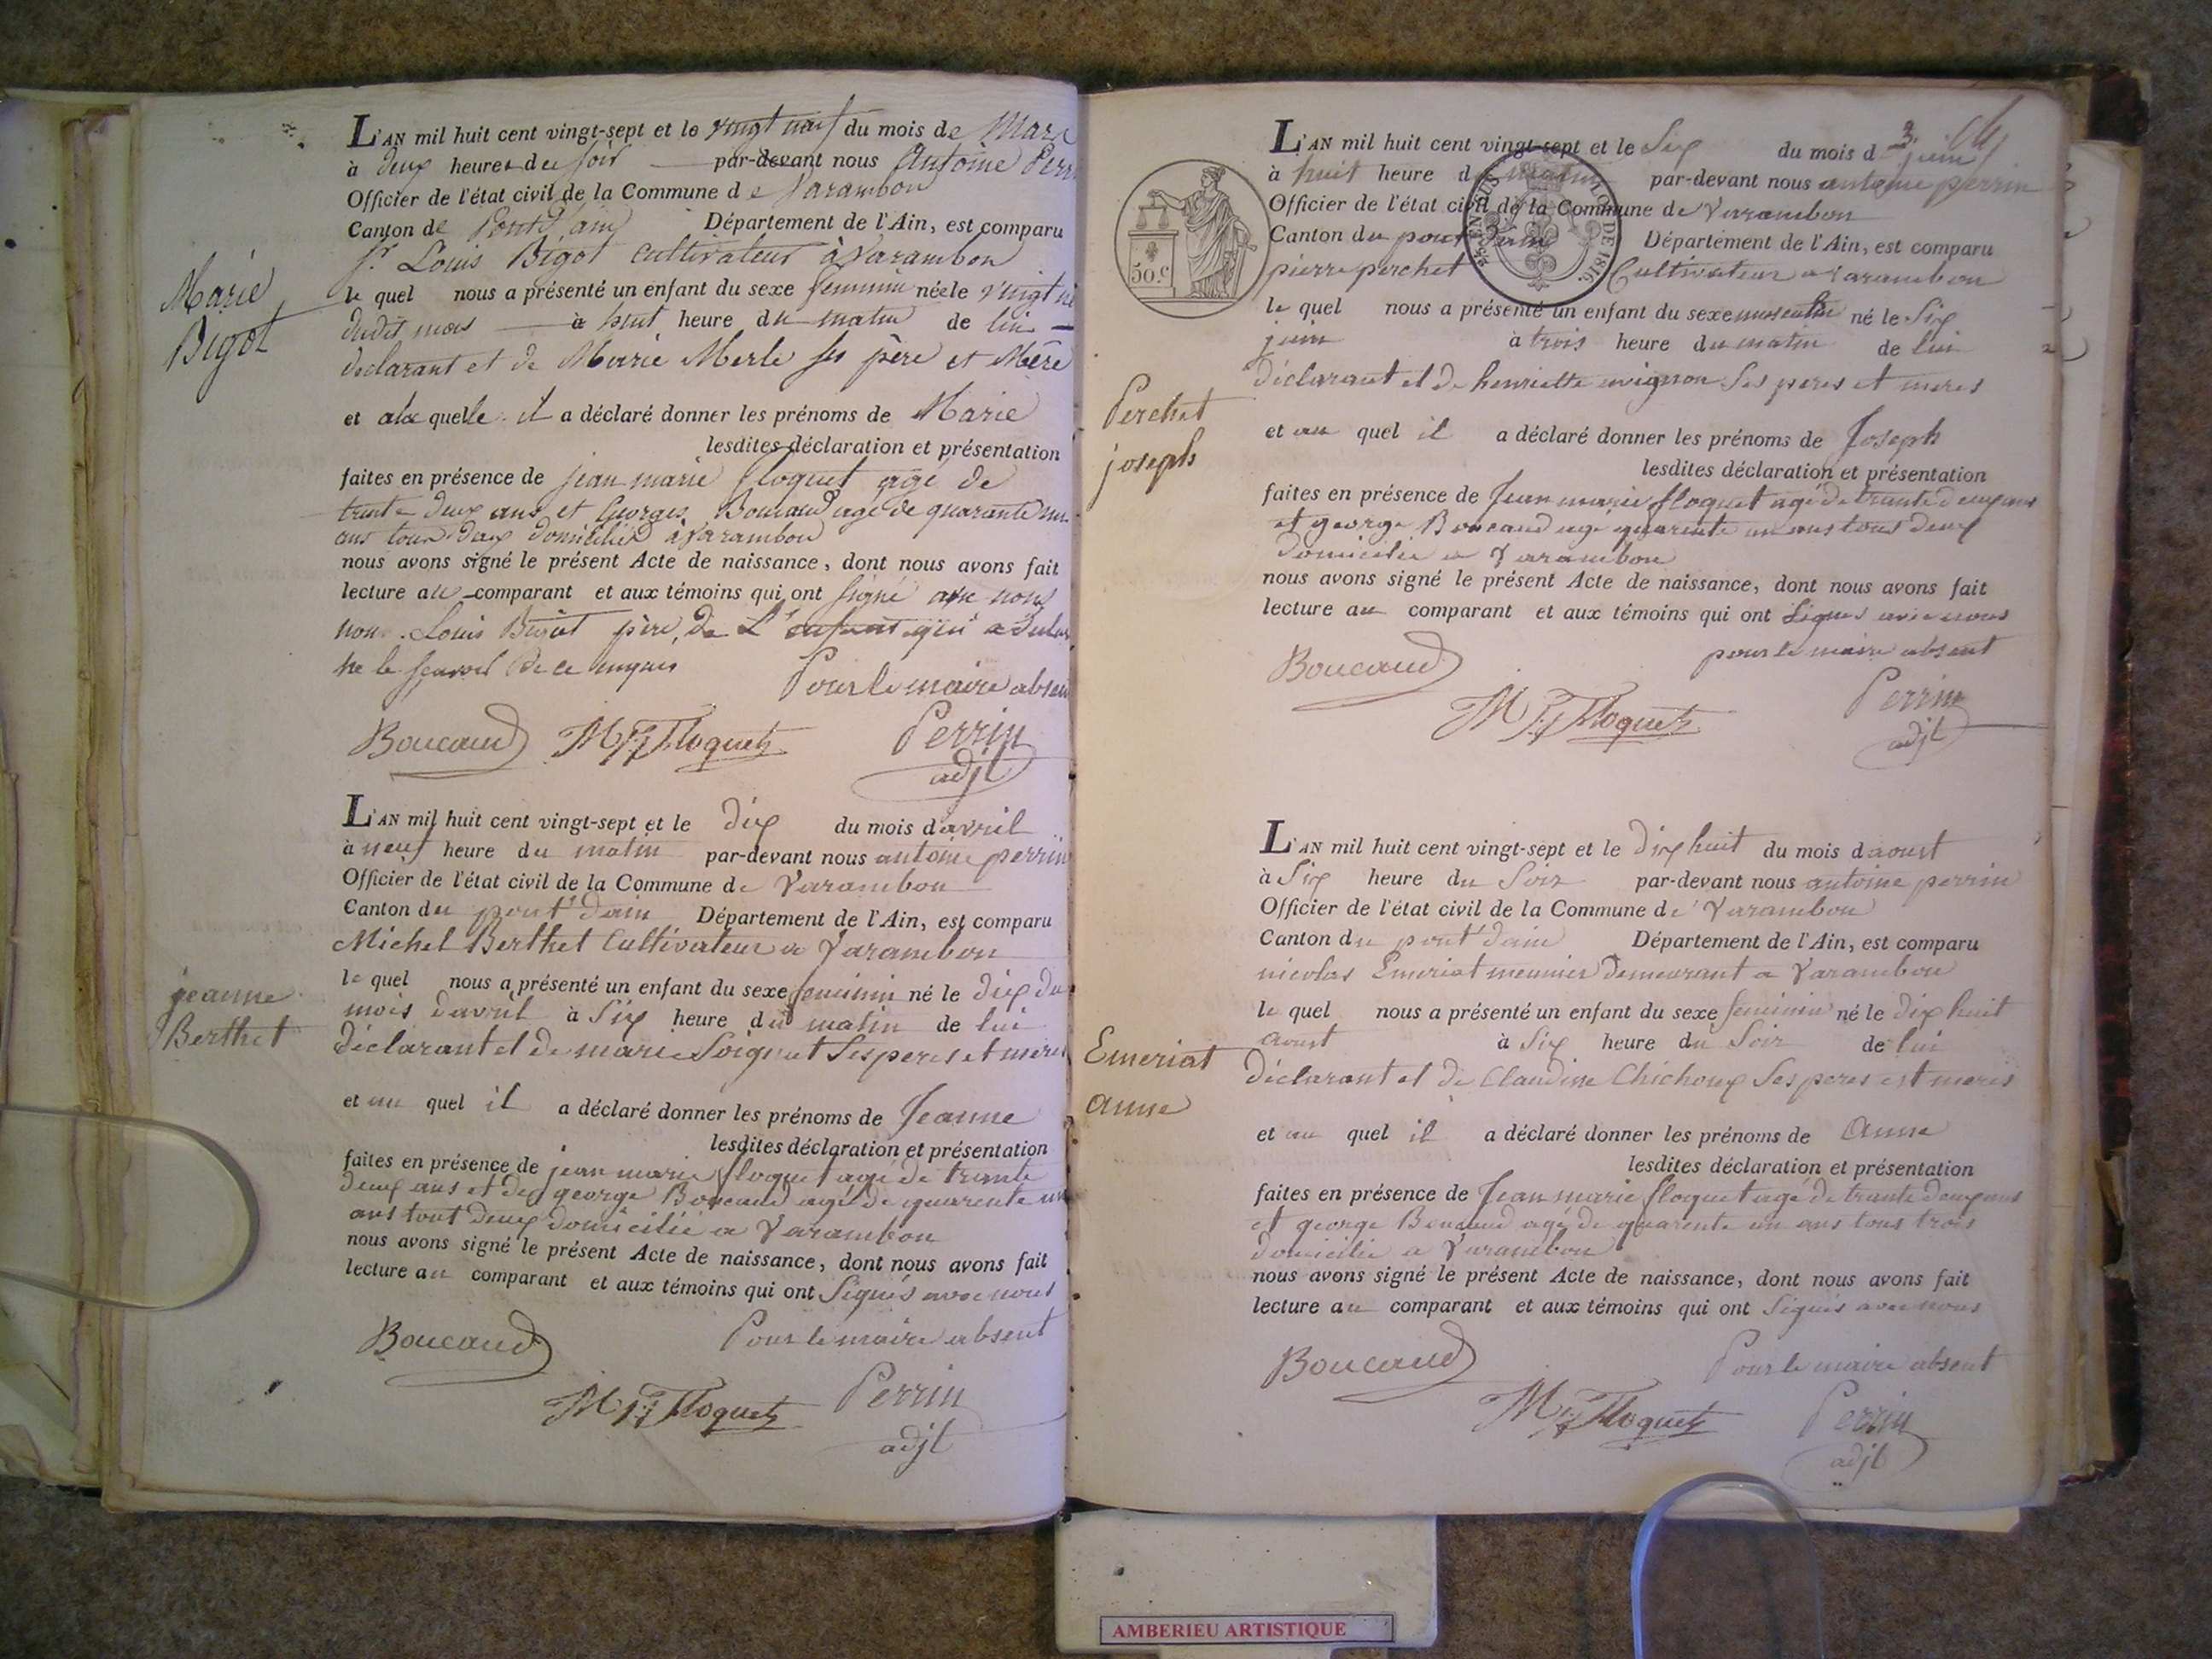 L'AN mil huit cent vingt-sept et le vingt neuf du mois de Mars
à deux heures du soir par-devant nous Antoine Perr
Officier de l'état civil de la Commune de Varambon
Canton de Pont d'ain Département de l'Ain, est comparu
Sr. Louis Bigot Cultivateur à Varambon
le quel nous a présenté un enfant du sexe feminin née le vingt
dudit mois à huit heure du matin de lui
declarant et de Marie Merle ses père et Mère
et a la quelle il a déclaré donner les prénoms de Marie
lesdites déclaration et présentation
faites en présence de jean marie floquet agé de
trente deux ans et Georges Boucaud agé de quarante un
ans tous deux domiciliés à Varambon
nous avons signé le présent Acte de naissance, dont nous avons fait
lecture au comparant et aux témoins qui ont signé avec nous
non Louis Bigot père de L'enfant qui a
ne le scavoir de ce enquis
Pour le maire absen
Boucaud MJ Floquet Perrin
adjt
Marie
Bigot
L'AN mil huit cent vingt-sept et le dix du mois d'avril
à neuf heure du matin par-devant nous antoine perrin
Officier de l'état civil de la Commune de Varambon
Canton du pont d'ain Département de l'Ain, est comparu
Michel Berthet Cultivateur a Varambon
le quel nous a présenté un enfant du sexe feminin né le dix du
mois d'avril à Six heure du matin de lui
déclarant et de marie Soignet Ses peres et meres
et au quel il a déclaré donner les prénoms de Jeanne
lesdites déclaration et présentation
faites en présence de jean marie floquet agé de trante
deux ans et de george Boucaud agé de quarente un
ans tout deux domicilié a Varambon
nous avons signé le présent Acte de naissance, dont nous avons fait
lecture au comparant et aux témoins qui ont Signés avec nous
Boucaud Pour le maire absent
MJ Floquet Perrin
adjt
jeanne
Berthet
3
L'AN mil huit cent vingt-sept et le Six du mois de juin
à huit heure du matin par-devant nous antoine perrin
Officier de l'état civil de la Commune de Varambon
Canton du pont d'ain Département de l'Ain, est comparu
pierre perchet Cultivateur a varambon
le quel nous a présenté un enfant du sexe masculin né le Six
juin à trois heure du matin de lui
déclarant et de henriette avignon Ses peres et meres
et au quel il a déclaré donner les prénoms de Joseph
lesdites déclaration et présentation
faites en présence de Jean marie floquet agé de trante deux ans
et george Boucaud age quarente un ans tous deux
domicilie a Varambon
nous avons signé le présent Acte de naissance, dont nous avons fait
lecture au comparant et aux témoins qui ont Signés avec nous
Boucaud pour le maire absent
MJ Floquet Perrin
adjt
50 c.
DE 1816.
Perchet
joseph
L'AN mil huit cent vingt-sept et le dix huit du mois d'aoust
à Six heure du Soir par-devant nous antoine perrin
Officier de l'état civil de la Commune de Varambon
Canton du pont d'ain Département de l'Ain, est comparu
nicolas Emeriat meunier demeurant a Varambon
le quel nous a présenté un enfant du sexe feminin né le dix huit
aoust à Six heure du Soir de lui
déclarant et de Claudine Chichoux Ses peres et meres
et au quel il a déclaré donner les prénoms de Anne
lesdites déclaration et présentation
faites en présence de Jean marie floquet agé de trante deux ans
et george Boucaud agé de quarente un ans tous trois
domicilie a Varambon
nous avons signé le présent Acte de naissance, dont nous avons fait
lecture au comparant et aux témoins qui ont Signés avec nous
Boucaud Pour le maire absent
MJ Floquet Perrin
adjt
Emeriat
Anne
AMBERIEU ARTISTIQUE